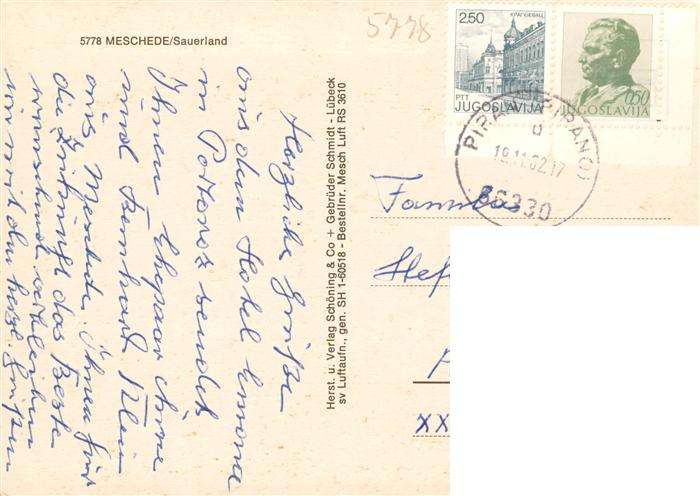 5778 MESCHEDE/Sauerland
5778
2.50
КРАГУЈЕВАЦ
PTT
JUGOSLAVIJA
0.50
JUGOSLAVIJA
PIRAN (PIRANO)
19.11.82.17
66330
Herzliche Grüße
aus dem Hotel
in Portoroz sendet
Ihnen Ehepaar Anne
und Bernhard Klein
aus Meschede. Ihnen für
die Zukunft das Beste
wünschend verbleiben
wir mit den herzl. Grüßen
Herst. u. Verlag Schöning & Co + Gebrüder Schmidt - Lübeck
sv Luftaufn., gen. SH 1-60518 - Bestellnr. Mesch Luft RS 3610
Familie
Hef
XX